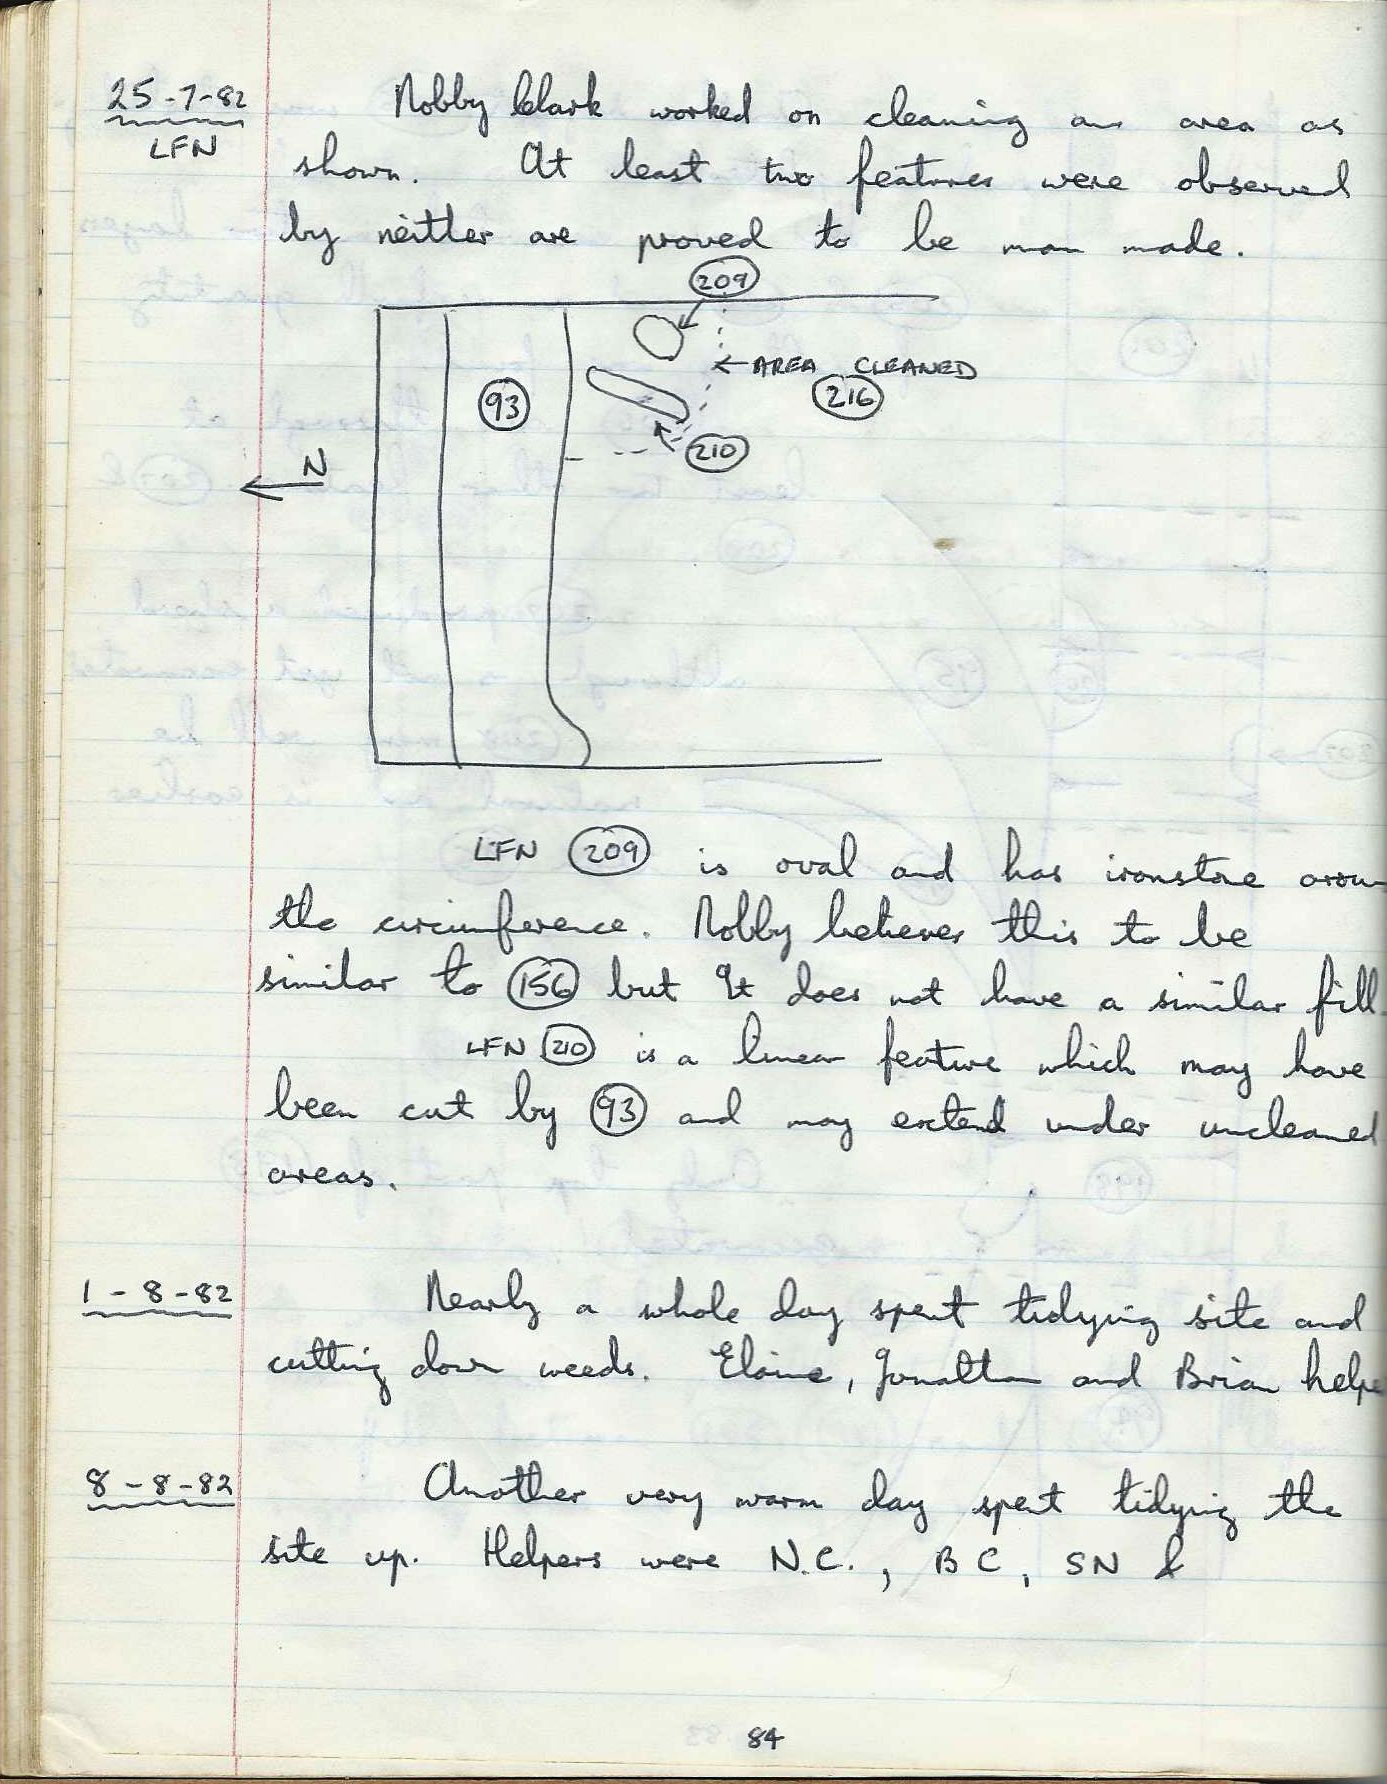 25-7-82
LFN
Nobby Clark worked on cleaning an area as
shown. At least two features were observed
by neither are proved to be man made.
209
← AREA CLEANED
216
93
210
N
LFN 209 is oval and has ironstone aroun
the circumference. Nobby believes this to be
similar to 156 but It does not have a similar fill.
LFN 210 is a linear feature which may have
been cut by 93 and may extend under uncleaned
areas.
1-8-82
Nearly a whole day spent tidying site and
cutting down weeds. Elaine, Jonathan and Brian helpe
8-8-82
Another very warm day spent tidying the
site up. Helpers were N.C., BC, SN &
84